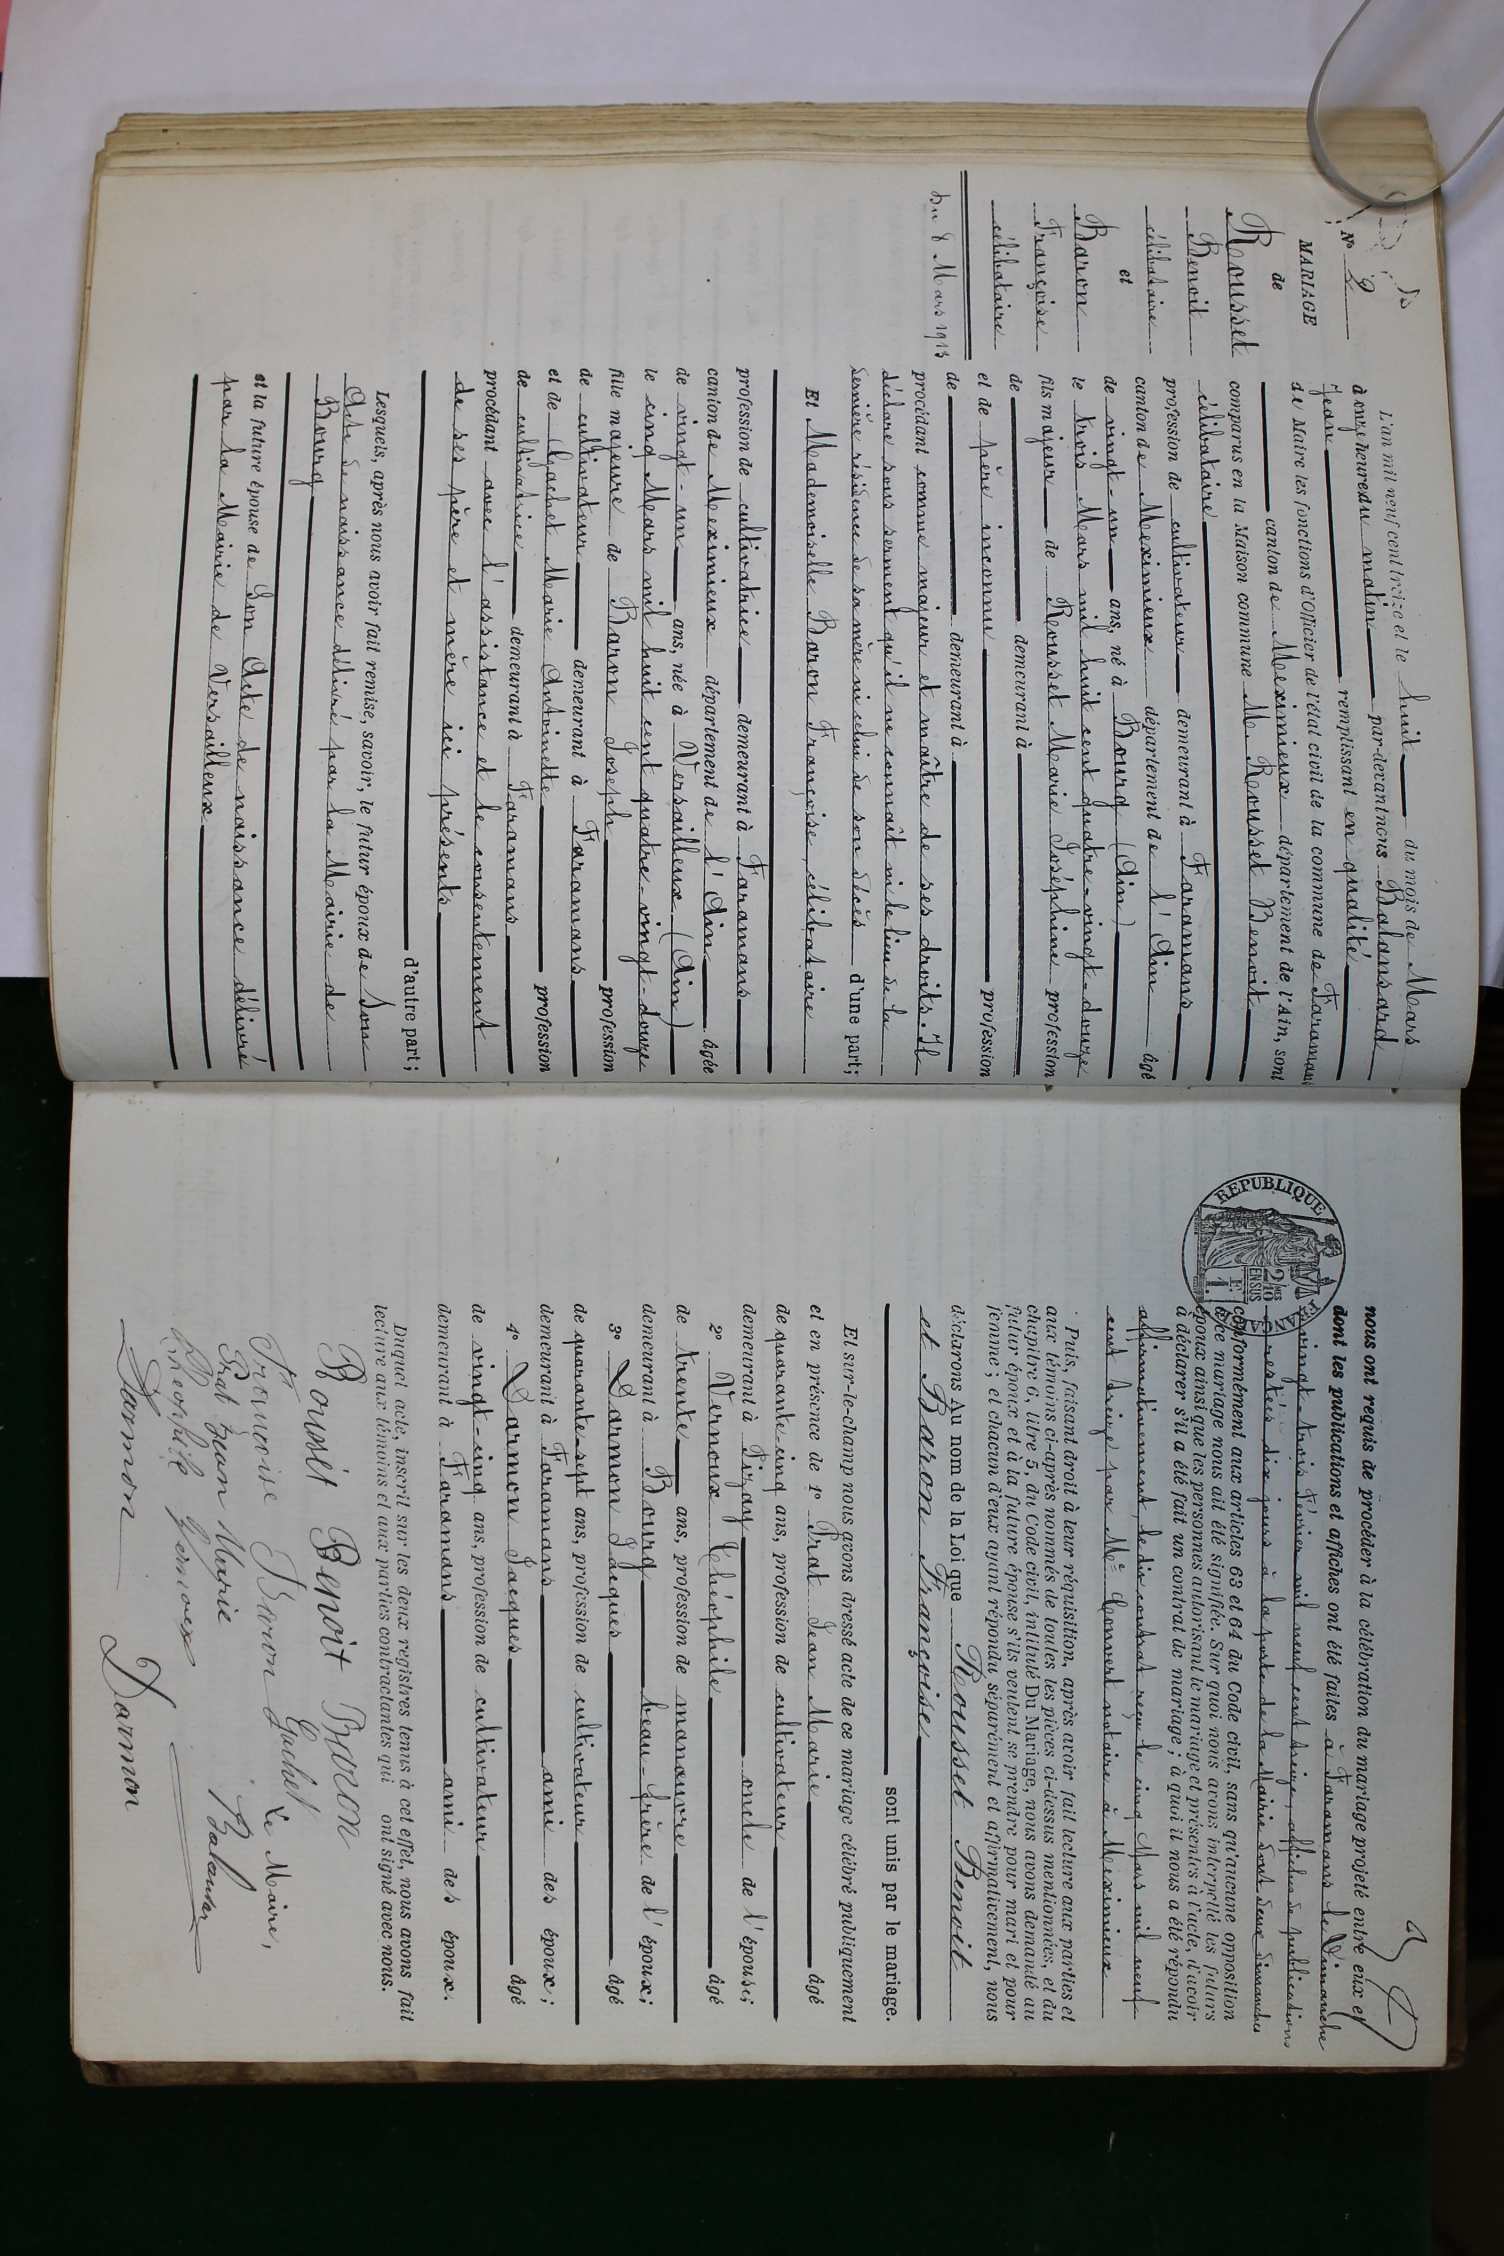 N° 2
MARIAGE
de
Rousset
Benoit
célibataire
et
Baron
Françoise
célibataire
Du 8 Mars 1913
L'an mil neuf cent treize et le huit du mois de Mars
à onze heures du matin par-devant nous Balansard
Jean remplissant en qualité
de Maire les fonctions d'Officier de l'état civil de la commune de Faramans
canton de Meximieux département de l'Ain, sont
comparus en la Maison commune M. Rousset Benoit
célibataire
profession de cultivateur demeurant à Faramans
canton de Meximieux département de l'Ain âgé
de vingt-un ans, né à Bourg (Ain)
le trois Mars mil huit cent quatre-vingt-douze
fils majeur de Rousset Marie Joséphine profession
de demeurant à
et de père inconnu profession
de demeurant à
procédant comme majeur et maître de ses droits. Il
déclare sous serment qu'il ne connaît ni le lieu de la
dernière résidence de sa mère ni celui de son décès d'une part;
Et Mademoiselle Baron Françoise, célibataire
profession de cultivatrice demeurant à Faramans
canton de Meximieux département de l'Ain âgée
de vingt-un ans, née à Versailleux (Ain)
le cinq Mars mil huit cent quatre-vingt-douze
fille majeure de Baron Joseph profession
de cultivateur demeurant à Faramans
et de Gachet Marie Antoinette profession
de cultivatrice demeurant à Faramans
procédant avec l'assistance et le consentement
de ses père et mère ici présents
d'autre part;
Lesquels, après nous avoir fait remise, savoir, le futur époux de Son
Acte de naissance délivré par la Mairie de
Bourg
et la future épouse de Son Acte de naissance délivré
par la Mairie de Versailleux
REPUBLIQUE FRANÇAISE
2/10 MES
EN SUS
1 F.
nous ont requis de procéder à la célébration du mariage projeté entre eux et
dont les publications et affiches ont été faites à Faramans le Dimanche
vingt-trois Février mil neuf cent treize, affiches de publications
restées dix jours à la porte de la Mairie dont deux dimanches
conformément aux articles 63 et 64 du Code civil, sans qu'aucune opposition
à ce mariage nous ait été signifiée. Sur quoi nous avons interpellé les futurs
époux ainsi que les personnes autorisant le mariage et présentes à l'acte, d'avoir
à déclarer s'il a été fait un contrat de mariage; à quoi il nous a été répondu
affirmativement, ledit contrat reçu le cinq Mars mil neuf
cent treize par Me Convert notaire à Meximieux
Puis, faisant droit à leur réquisition, après avoir fait lecture aux parties et
aux témoins ci-après nommés de toutes les pièces ci-dessus mentionnées, et du
chapitre 6, titre 5, du Code civil, intitulé Du Mariage, nous avons demandé au
futur époux et à la future épouse s'ils veulent se prendre pour mari et pour
femme; et chacun d'eux ayant répondu séparément et affirmativement, nous
déclarons Au nom de la Loi que Rousset Benoit
et Baron Françoise
sont unis par le mariage.
Et sur-le-champ nous avons dressé acte de ce mariage célébré publiquement
et en présence de 1° Prat Jean Marie âgé
de quarante-cinq ans, profession de cultivateur
demeurant à Pizay oncle de l'épouse;
2° Vernoux Théophile âgé
de trente ans, profession de manœuvre
demeurant à Bourg beau-frère de l'époux;
3° Darmon Jacques âgé
de quarante-sept ans, profession de cultivateur
demeurant à Faramans ami des époux;
4° Darmon Jacques âgé
de vingt-cinq ans, profession de cultivateur
demeurant à Faramans ami des époux.
Duquel acte, inscrit sur les deux registres tenus à cet effet, nous avons fait
lecture aux témoins et aux parties contractantes qui ont signé avec nous.
Rousset Benoit Baron
Françoise Baron Gachet Le Maire,
Prat Jean Marie Balansard
Théophile Vernoux
Darmon Darmon